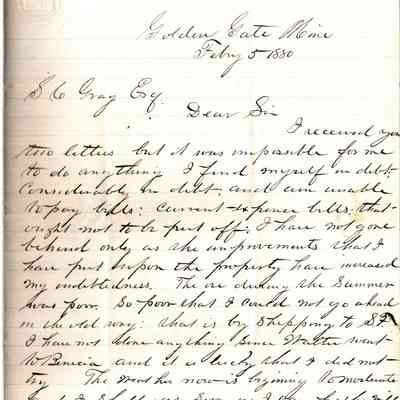 Golden Gate Mine
Febry 5 1880
S C Gray Esq.
Dear Sir
I received you
two letters but it was impossible for me
to do anything I find myself in debt,
Considerably in debt, and am unable
to pay bills: current expence bills, that
ought not to be put off: I have not gone
behind only as the improvements that I
have put upon the property have increased
my indebtedness. The ore during the Summer
was poor. So poor that I could not go ahead
in the old way: that is by Shipping to S.F.
I have not done anything Since went
to Benicia and it is lucky that I did not
try The weather now is begining to moderate
and I shall